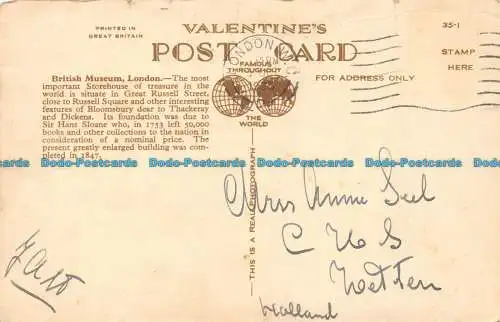 PRINTED IN
GREAT BRITAIN
VALENTINE'S
POST CARD
35-1
STAMP
HERE
LONDON
FAMOUS
THROUGHOUT
THE
WORLD
FOR ADDRESS ONLY
British Museum, London.—The most
important Storehouse of treasure in the
world is situate in Great Russell Street,
close to Russell Square and other interesting
features of Bloomsbury dear to Thackeray
and Dickens. Its foundation was due to
Sir Hans Sloane who, in 1753 left 50,000
books and other collections to the nation in
consideration of a nominal price. The
present greatly enlarged building was com-
pleted in 1847.
Dodo-Postcards Dodo-Postcards Dodo-Postcards Dodo-Postcards Dodo-Postcards
—THIS IS A REAL PHOTOGRAPH—
Anne
Holland
Dodo-Postcards Dodo-Postcards Dodo-Postcards Dodo-Postcards Dodo-Postcards